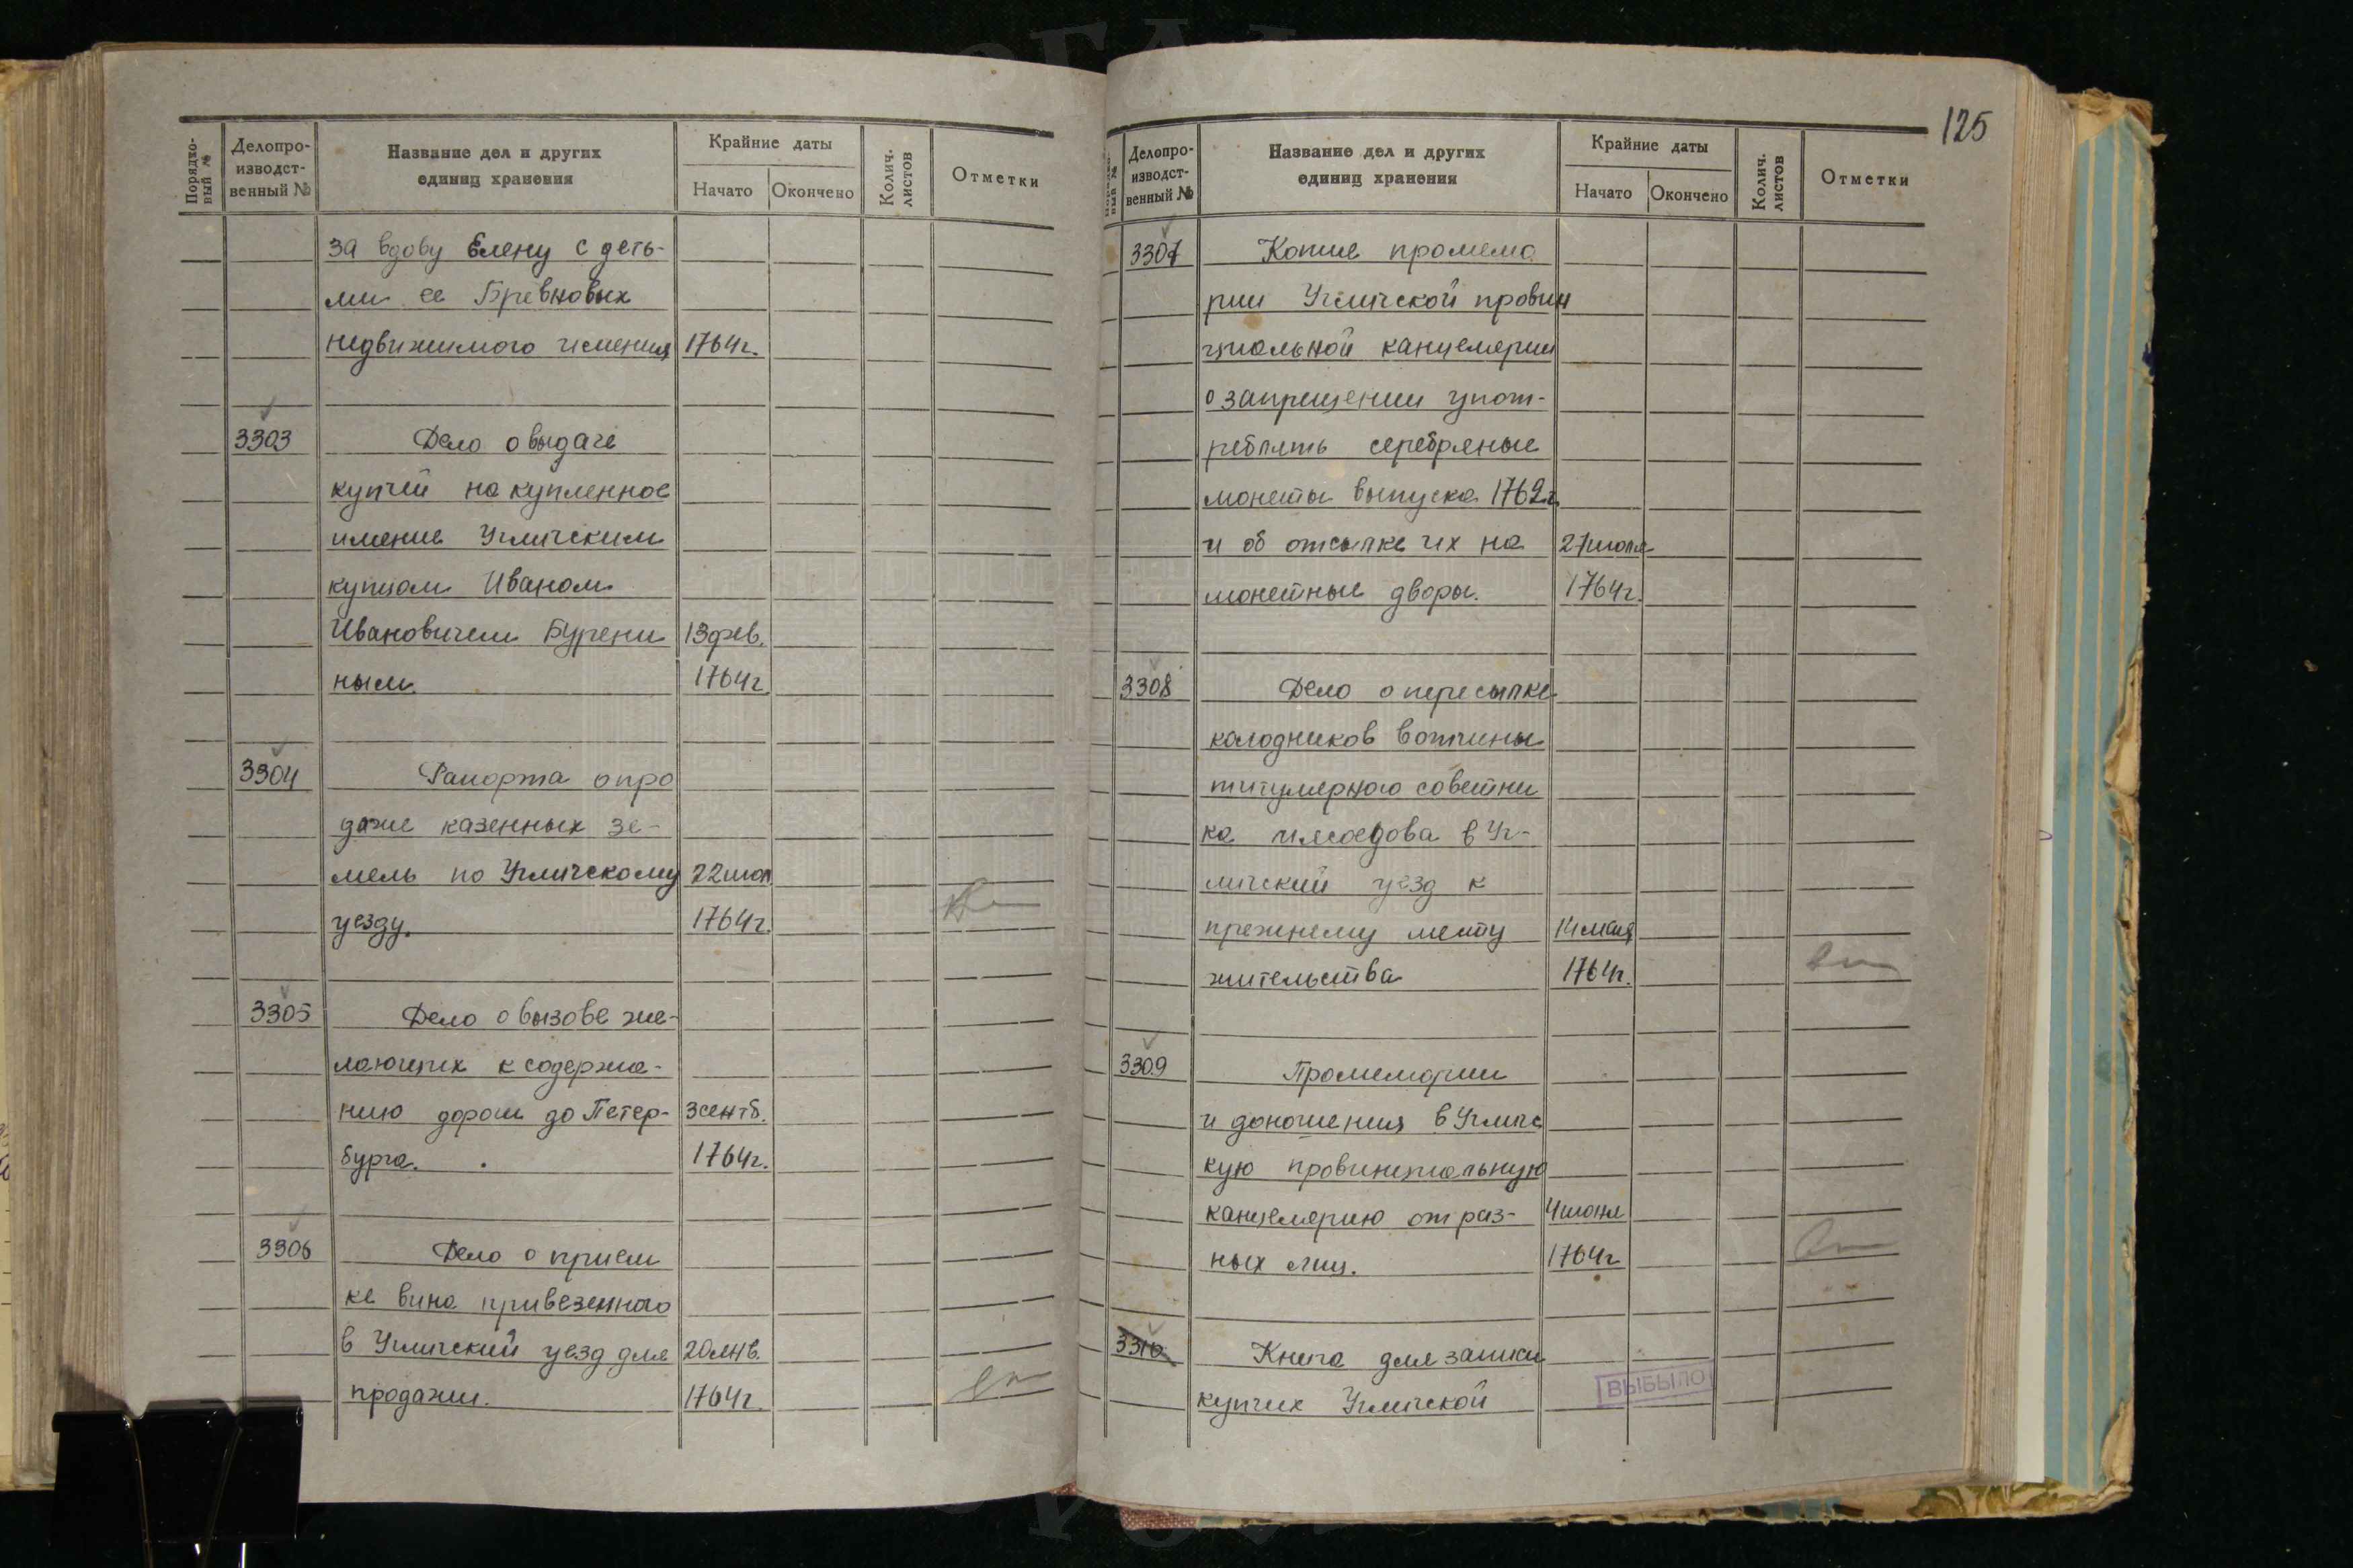 Порядко-
вый №
Делопро-
изводст-
венный №
Название дел и других
единиц хранения
Крайние даты
Начато
Окончено
Колич.
листов
Отметки
за вдову Елену с деть-
ми ее Бревновых
недвижимого имения 1764г.
3303 Дело о выдаче
купчей на купленное
имение Угличским
купцом Иваном
Ивановичем Бурени 13 фев.
ным. 1764г.
3304 Рапорта о про
даже казенных зе-
мель по Угличскому 22 июл
уезду. 1764г.
3305 Дело о вызове же-
лающих к содержа-
нию дороги до Петер- 3 сентб.
бурга. 1764г.
3306 Дело о прием
ке вина привезенного
в Угличский уезд для 20 янв.
продажи. 1764г.
125
Делопро-
изводст-
венный №
Название дел и других
единиц хранения
Крайние даты
Начато
Окончено
Колич.
листов
Отметки
3307 Копие промемо
рии Угличской провин
циальной канцелярии
о запрещении упот-
реблять серебряные
монеты выпуска 1762г.
и об отсылке их на 27 июля
монетные дворы. 1764г.
3308 Дело о пересылке
колодников вотчины
титулярного советни
ка в Уг-
личский уезд к
прежнему месту 14 мая
жительства 1764г.
3309 Промемории
и доношения в Угличс
кую провинциальную
канцелярию от раз- 4 июня
ных лиц. 1764г
3310 Книга для записи
купчих Угличской
ВЫБЫЛО